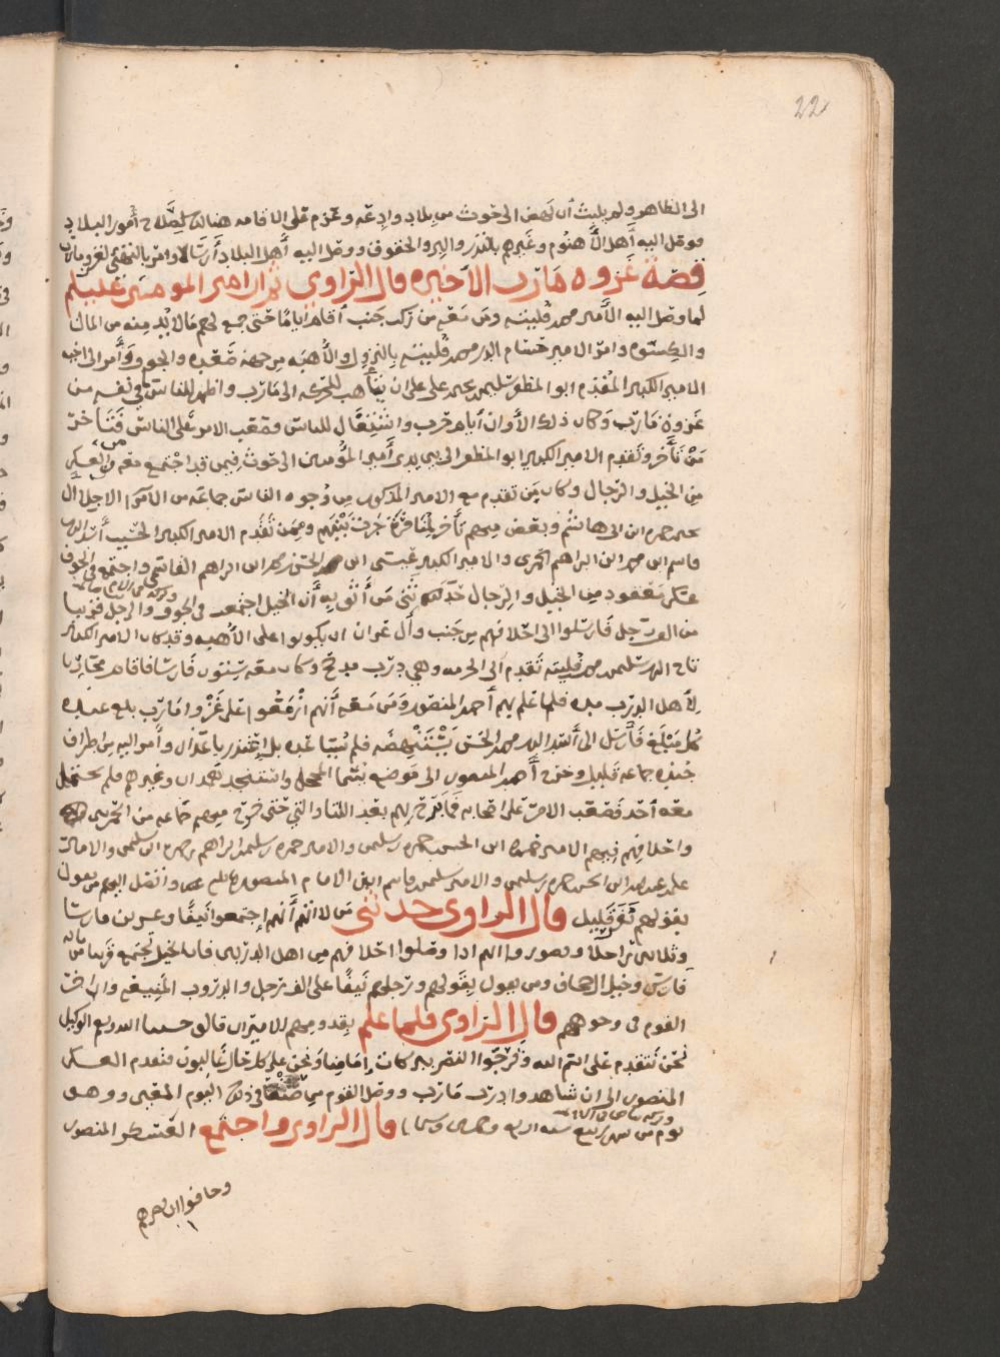 22
الى الظاهر ولم يلبث أن نهض الى حوث من بلاد وادعه وعزم على الاقامه هنالك لصلاح أمور البلاد
ووصل اليه أهل الأهنوم وغيرهم بالنذر والبر والحقوق ووصل اليه أهل البلاد
قصة غزوه مارب الأخيره قال الراوي ثم ان امير المومنين عليلم
لما وصل اليه الأمير محمد بن فليته ومن معه من ترك جنب أقام أياما حتى جمع لهم مالا بد منه من المال
والكسوه وامر الامير حسام الدين محمد بن فليته بالنزول والأهبه من جهة صعده والجوف وأمر الى اخيه
الامير الكبير المقدم ابو المظفر سليمن بن يحيى على ان يتأهب للحركه الى مارب واظهر للناس ما في نفسه من
غزوة مارب وكان ذلك الأوان أيام خرب واشتغال للناس فصعب الامر على الناس فتاخر
من تأخر وتقدم الامير الكبير ابو المظفر الى بين يدي أمير المؤمنين الى حوث فيمن قد اجتمع معه من العسكر
من الخيل والرجال وكان ممن تقدم مع الامير المذكور من وجوه الناس جماعه من الأمرا الاجلا آل
يحيى بن حمزه ابن ابي هاشم وبعض منهم تأخر لمنافرة جرت بينهم وممن تقدم الامير الكبير الحسيب أسد الدين
قاسم ابن محمد ابن ابراهيم الحمزي والامير الكبير عيسى ابن محمد الحسن بن محمد ابن ابراهم القاسمي واجتمع في الجوف
عسكر معقود من الخيل والرجال حدثني من أثق به أن الخيل اجتمعت في الجوف والرجل قريبا
من الف رجل فارسلوا الى احلافهم من جنب وآل عمران ان يكونوا على الأهبه وقد كان الامير الكبير
تاج الدين سليمن بن محمد بن فليته تقدم الى الحرمه وهي درب مدحج وكان معه ستون فارسا فاقام محتازبا
لأهل الدرب مده فلما علم بهم أحمد المنصور ومن معه أنهم ازمعوا على غزوا مارب بلغ عنده
كل مبلغ فأرسل الى أسد الدين محمد بن الحسن يستنهضه فلم يساعده بل اعتذر باعذال وأمر اليه من اطراف
جنده جماعه قليل وخرج أحمد المنصور الى موضع يسما المحجل واستنجد همدان وغيرهم فلم يحتمل
معه أحد فصعب الامر على اصحابه فما برح لهم بعد اللتيا والتي حتى خرج منهم جماعه من الحمزيين
واحلافهم فيهم الامير حمزه ابن الحسن بن حمزه بن سليمن والامير حمزه بن سليمن بن ابراهم بن حمزه ابن سليمن والامير
علي بن عبدالله ابن الحسن بن حمزه بن سليمن والامير سليمن بن قاسم ابن الامام المنصور
بقولهم نفر قليل قال الراوي حدثني من لا اتهم أنهم اجتمعوا نيفا وعشرين فارسا
وثلاثين راحلا وتصوروا انهم اذا وصلوا احلافهم من اهل الدرب فان الخيل تجتمع قريبا من مايه
فارس وخيل ومن يقول بقولهم ورجلهم نيفا على الف رجل والدروب المنيفه
القوم في وجوههم قال الراوي فلما علم بقدومهم للاميران قالوا حسبنا الله ونعم الوكيل
نحن نتقدم على اسم الله ونرجوا النصر ببركات إمامنا ونحن على كل حال غالبون فتقدم العسكر
المنصور الى ان شاهدوا درب مارب ووصل القوم من صنعا في ذلك اليوم المقبل وهو
يوم من شهر ربيع سنه اربع وخمسين وستمايه قال الراوي واجتمع العسكر المنصور
وحافوا ان بعرهم